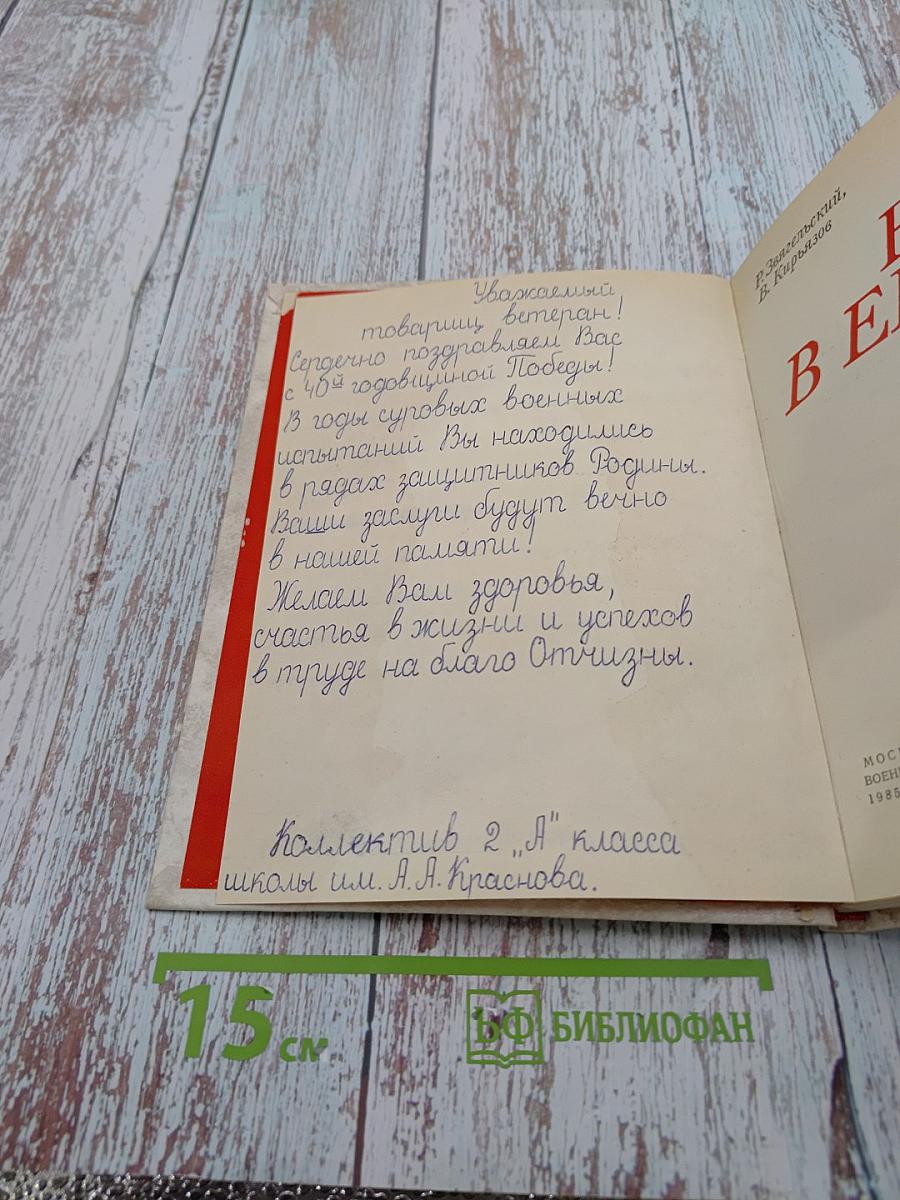 Уважаемый
товарищ ветеран!
Сердечно поздравляем Вас
с 40й годовщиной Победы!
В годы суровых военных
испытаний Вы находились
в рядах защитников Родины.
Ваши заслуги будут вечно
в нашей памяти!
Желаем Вам здоровья,
счастья в жизни и успехов
в труде на благо Отчизны.
Коллектив 2 „А" класса
школы им. А.А.Краснова.
Р. Звягельский,
В. Кирьязов
В ЕІ
МОС
ВОЕН
1985
15 см
БФ БИБЛИОФАН